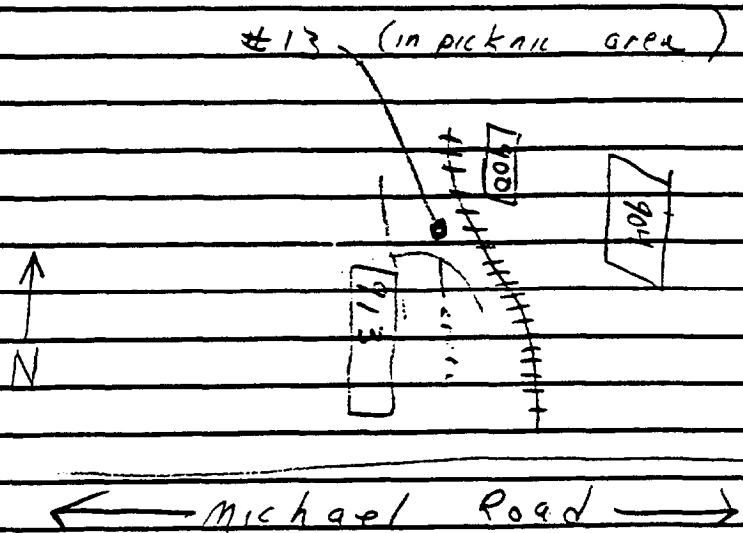 #13 (in picknic area)
400
406
413
N
Michael Road